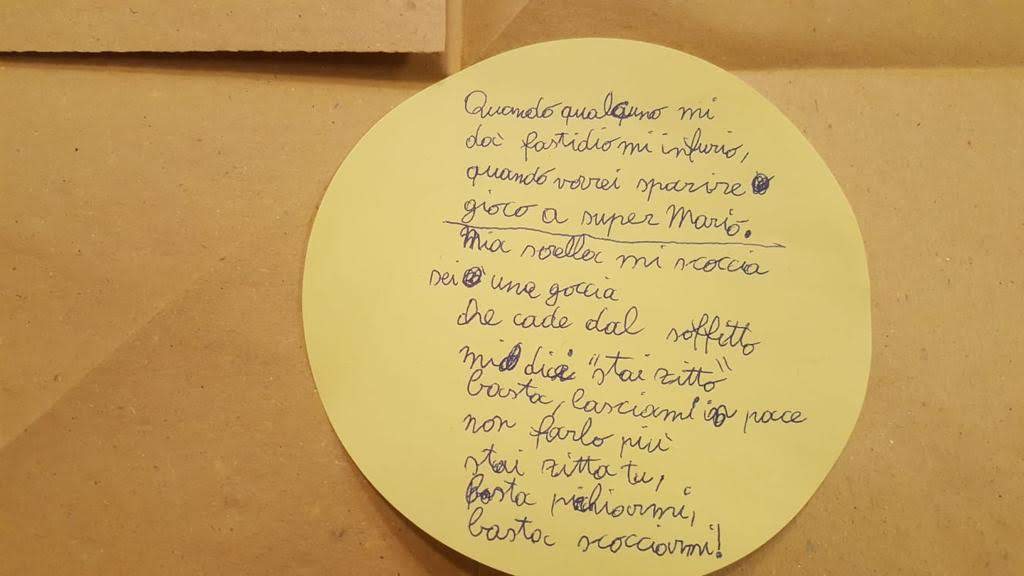 Quando qualcuno mi
dà fastidio mi infurio,
quando vorrei sparire
gioco a super Mario.
Mia sorella mi scoccia
sei una goccia
che cade dal soffitto
mi dici "stai zitto"
basta, lasciami in pace
non farlo più
stai zitta tu,
basta pichiarmi,
basta scocciarmi!